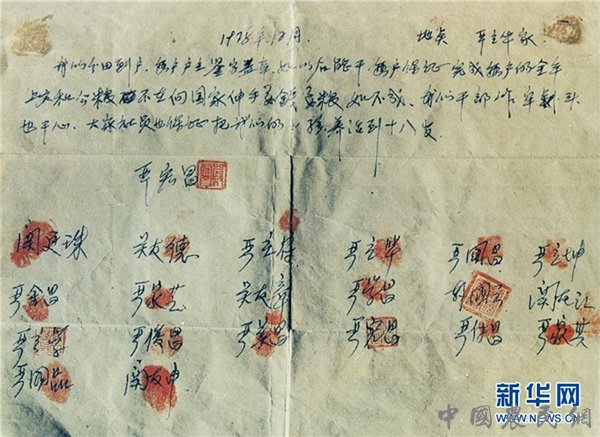 1978年12月 地点 严立华家
我们分田到户,每户户主签字盖章,如以后能干,每户保证完成每户的全年
上交和公粮,不在向国家伸手要钱要粮,如不成,我们干部作牢刹头
也干心,大家社员也保证把我们的小孩养活到十八岁。
严宏昌
关廷珠 关友德 严立符 严立华 严国昌 严立坤
严金昌 严家芝 关友章 严学昌 韩国云 关友江
严立学 严俊昌 严美昌 严宏昌 严付昌 严家其
严国品 关友申
新华网
WWW.NEWS.CN
中國農民網